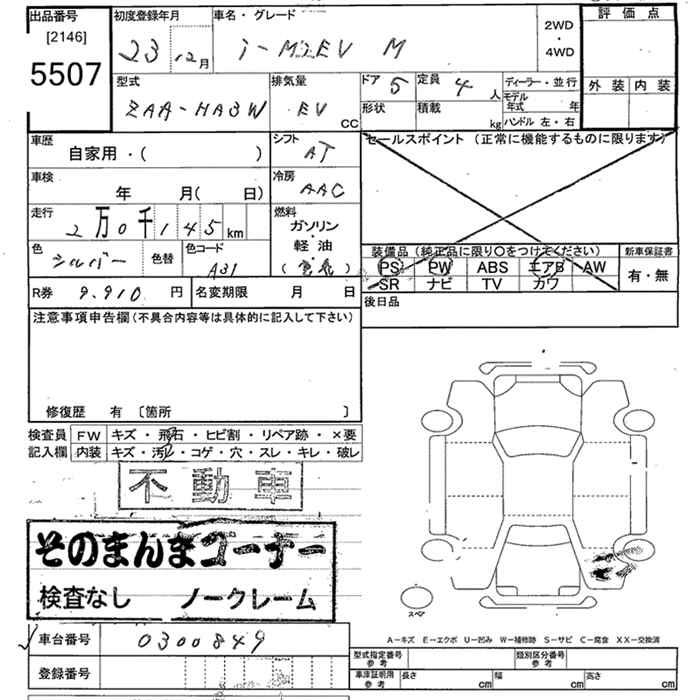 出品番号
[2146]
5507
初度登録年月
23 12月
車名・グレード
i-MiEV M
2WD
・
4WD
評価点
外装 内装
型式
ZAA-HA3W
排気量
EV
CC
ドア 5
定員 4 人
形状
積載
kg
ディーラー・並行
モデル
年式 年
ハンドル 左・右
車歴
自家用・( )
シフト
AT
セールスポイント (正常に機能するものに限ります)
車検
年 月( 日)
冷房
AAC
走行
2万0千145km
燃料
ガソリン
・
軽油
(電気)
色
シルバー
色替
色コード
A31
装備品 (純正品に限り○をつけてください)
PS PW ABS エアB AW
SR ナビ TV カワ
新車保証書
有・無
R券 9,910 円
名変期限 月 日
後日品
注意事項申告欄(不具合内容等は具体的に記入して下さい)
修復歴 有 〔箇所 〕
検査員
記入欄
FW キズ・飛石・ヒビ割・リペア跡・×要
内装 キズ・汚れ・コゲ・穴・スレ・キレ・破レ
不動車
そのまんまコーナー
検査なし ノークレーム
スペア
A-キズ E-エクボ U-凹み W-補修跡 S-サビ C-腐食 XX-交換済
車台番号 0300849
登録番号
型式指定番号
参考
類別区分番号
参考
車庫証明用
参考
長さ cm
幅 cm
高さ cm